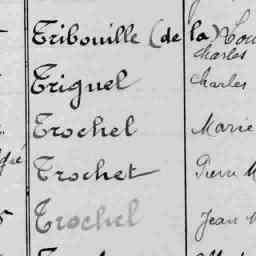 Tribouille (de la)
Charles
Triquel Charles
Trochel Marie
Trochet Pierre M
Trochel Jean